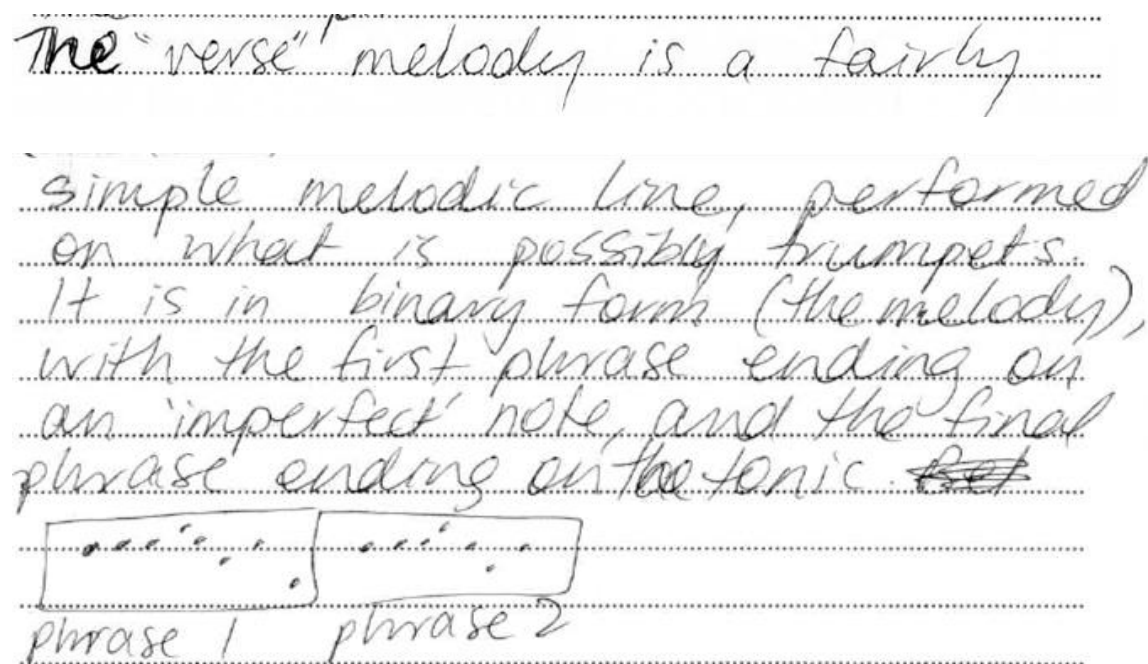 The "verse" melody is a fairly
simple melodic line, performed
on what is possibly trumpets.
It is in binary form (the melody),
with the first phrase ending on
an 'imperfect' note, and the final
phrase ending on the tonic.
phrase 1 phrase 2